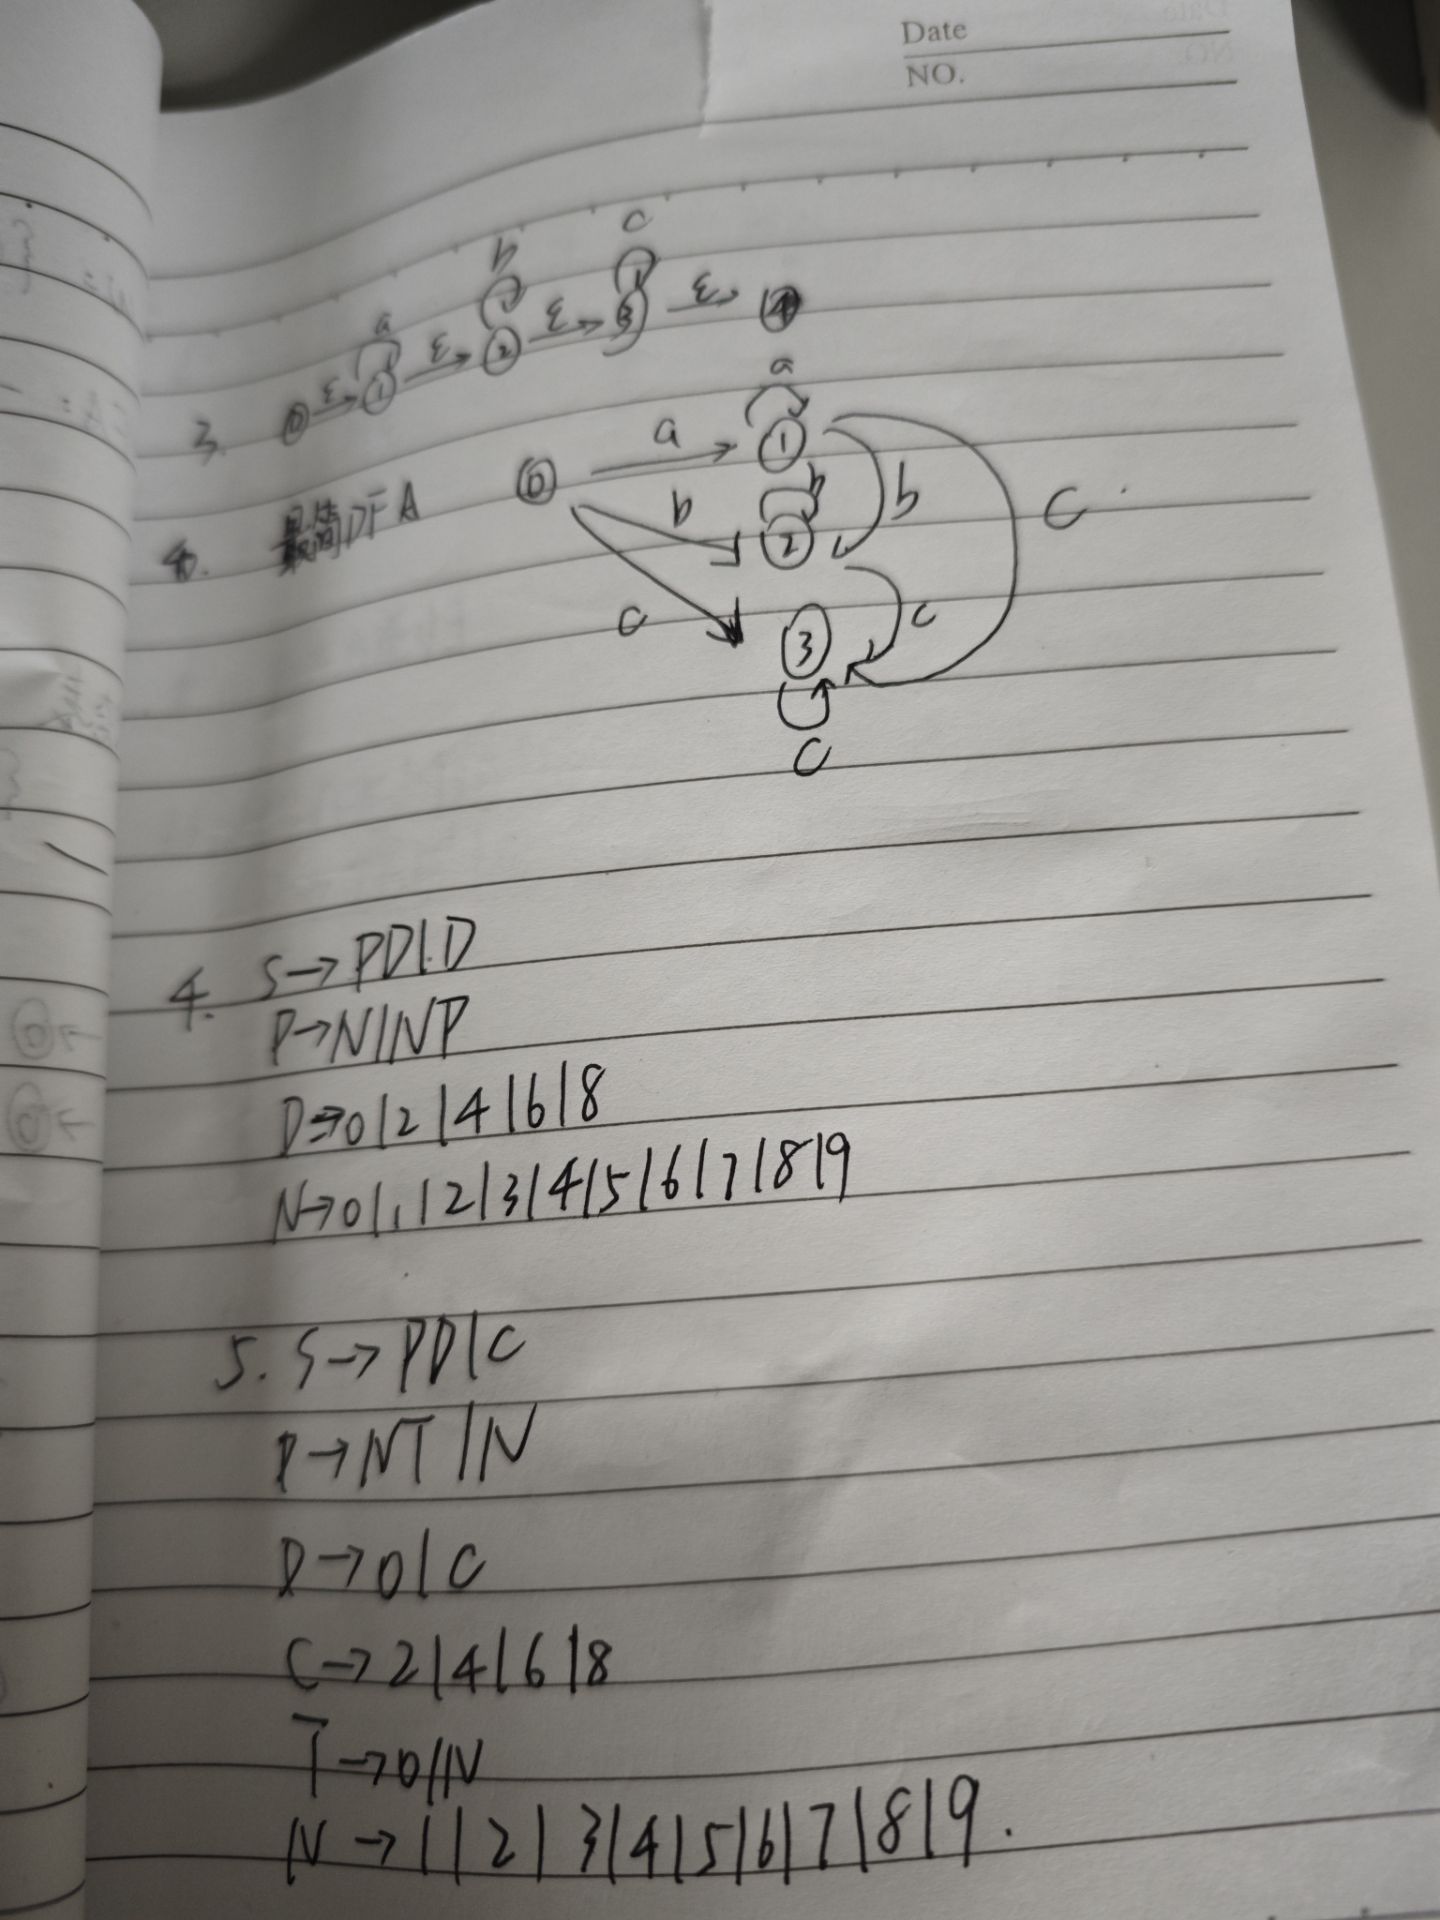 Date
NO.
3. 0 ε 1 a ε 2 b ε 3 c ε 4
最简DFA
0 a 1 a
b 2 b b
c 3 c c
C
4. S→PD|D
P→N|NP
D→0|2|4|6|8
N→0|1|2|3|4|5|6|7|8|9
5. S→PD|C
P→NT|N
D→0|C
C→2|4|6|8
T→0|N
N→1|2|3|4|5|6|7|8|9.